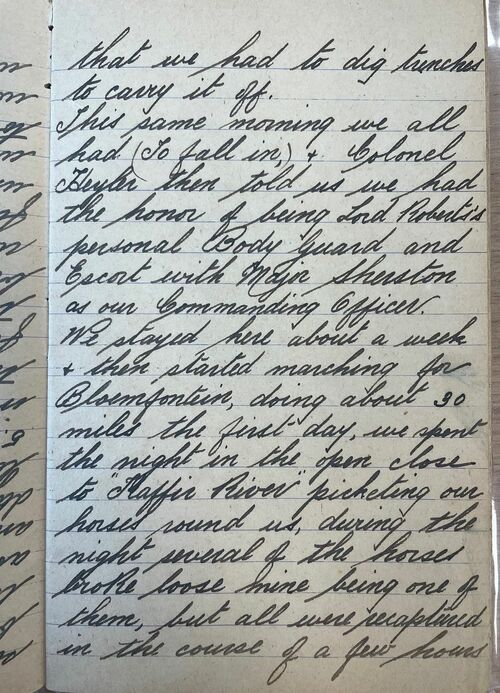 that we had to dig trenches
to carry it off.
This same morning we all
had (To fall in,) & Colonel
then told us we had
the honor of being Lord Roberts's
personal Body Guard and
Escort with Major Sherston
as our Commanding Officer.
We stayed here about a week
& then started marching for
Bloemfontein, doing about 30
miles the first day, we spent
the night in the open close
to "Kaffir River" picketing our
horses round us, during the
night several of the horses
broke loose mine being one of
them, but all were recaptured
in the course of a few hours